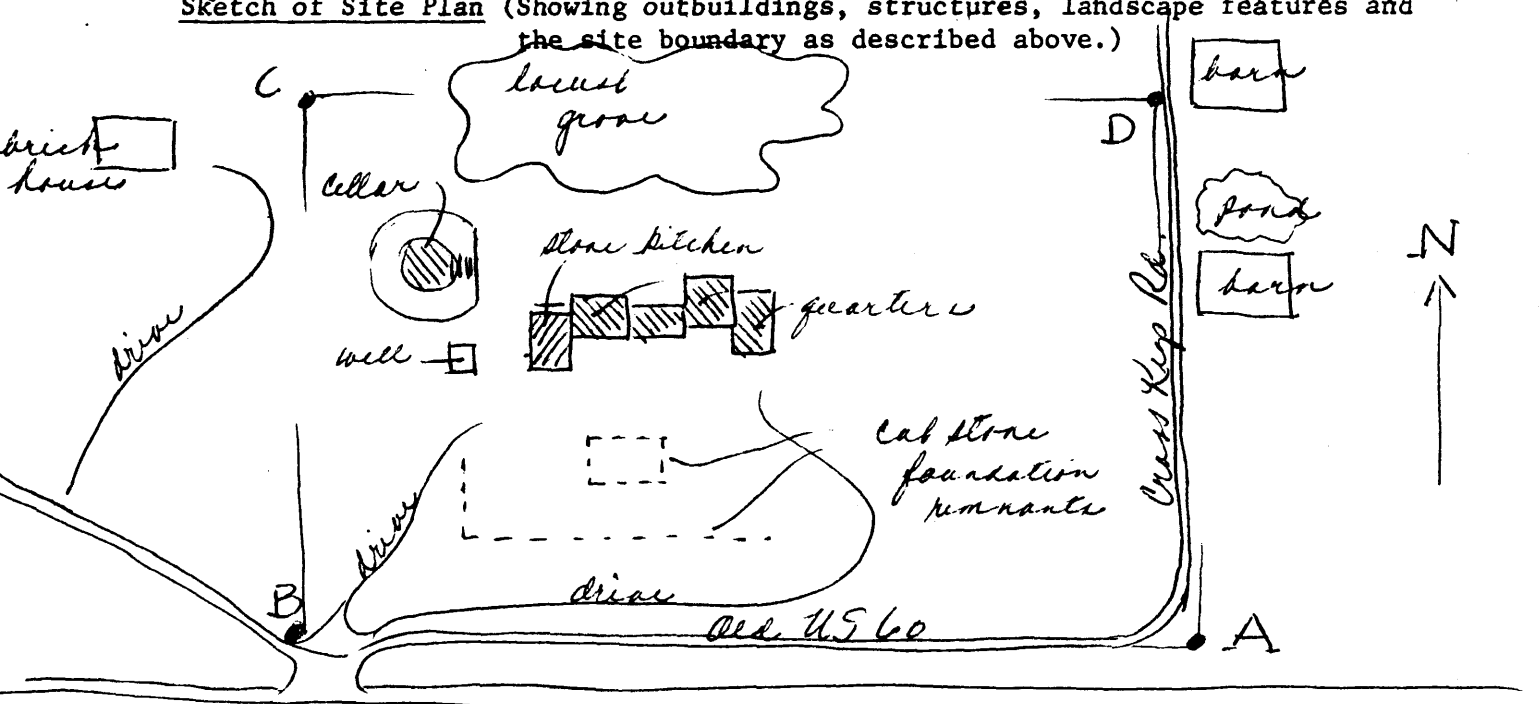 Sketch of Site Plan (Showing outbuildings, structures, landscape features and
the site boundary as described above.)
C
locust
grove
barn
D
brick
house
cellar
pond
stone kitchen
N
barn
quarters
drive
well
Cross Kys Rd.
cut stone
foundation
remnants
drive
B
drive
Old US 60
A